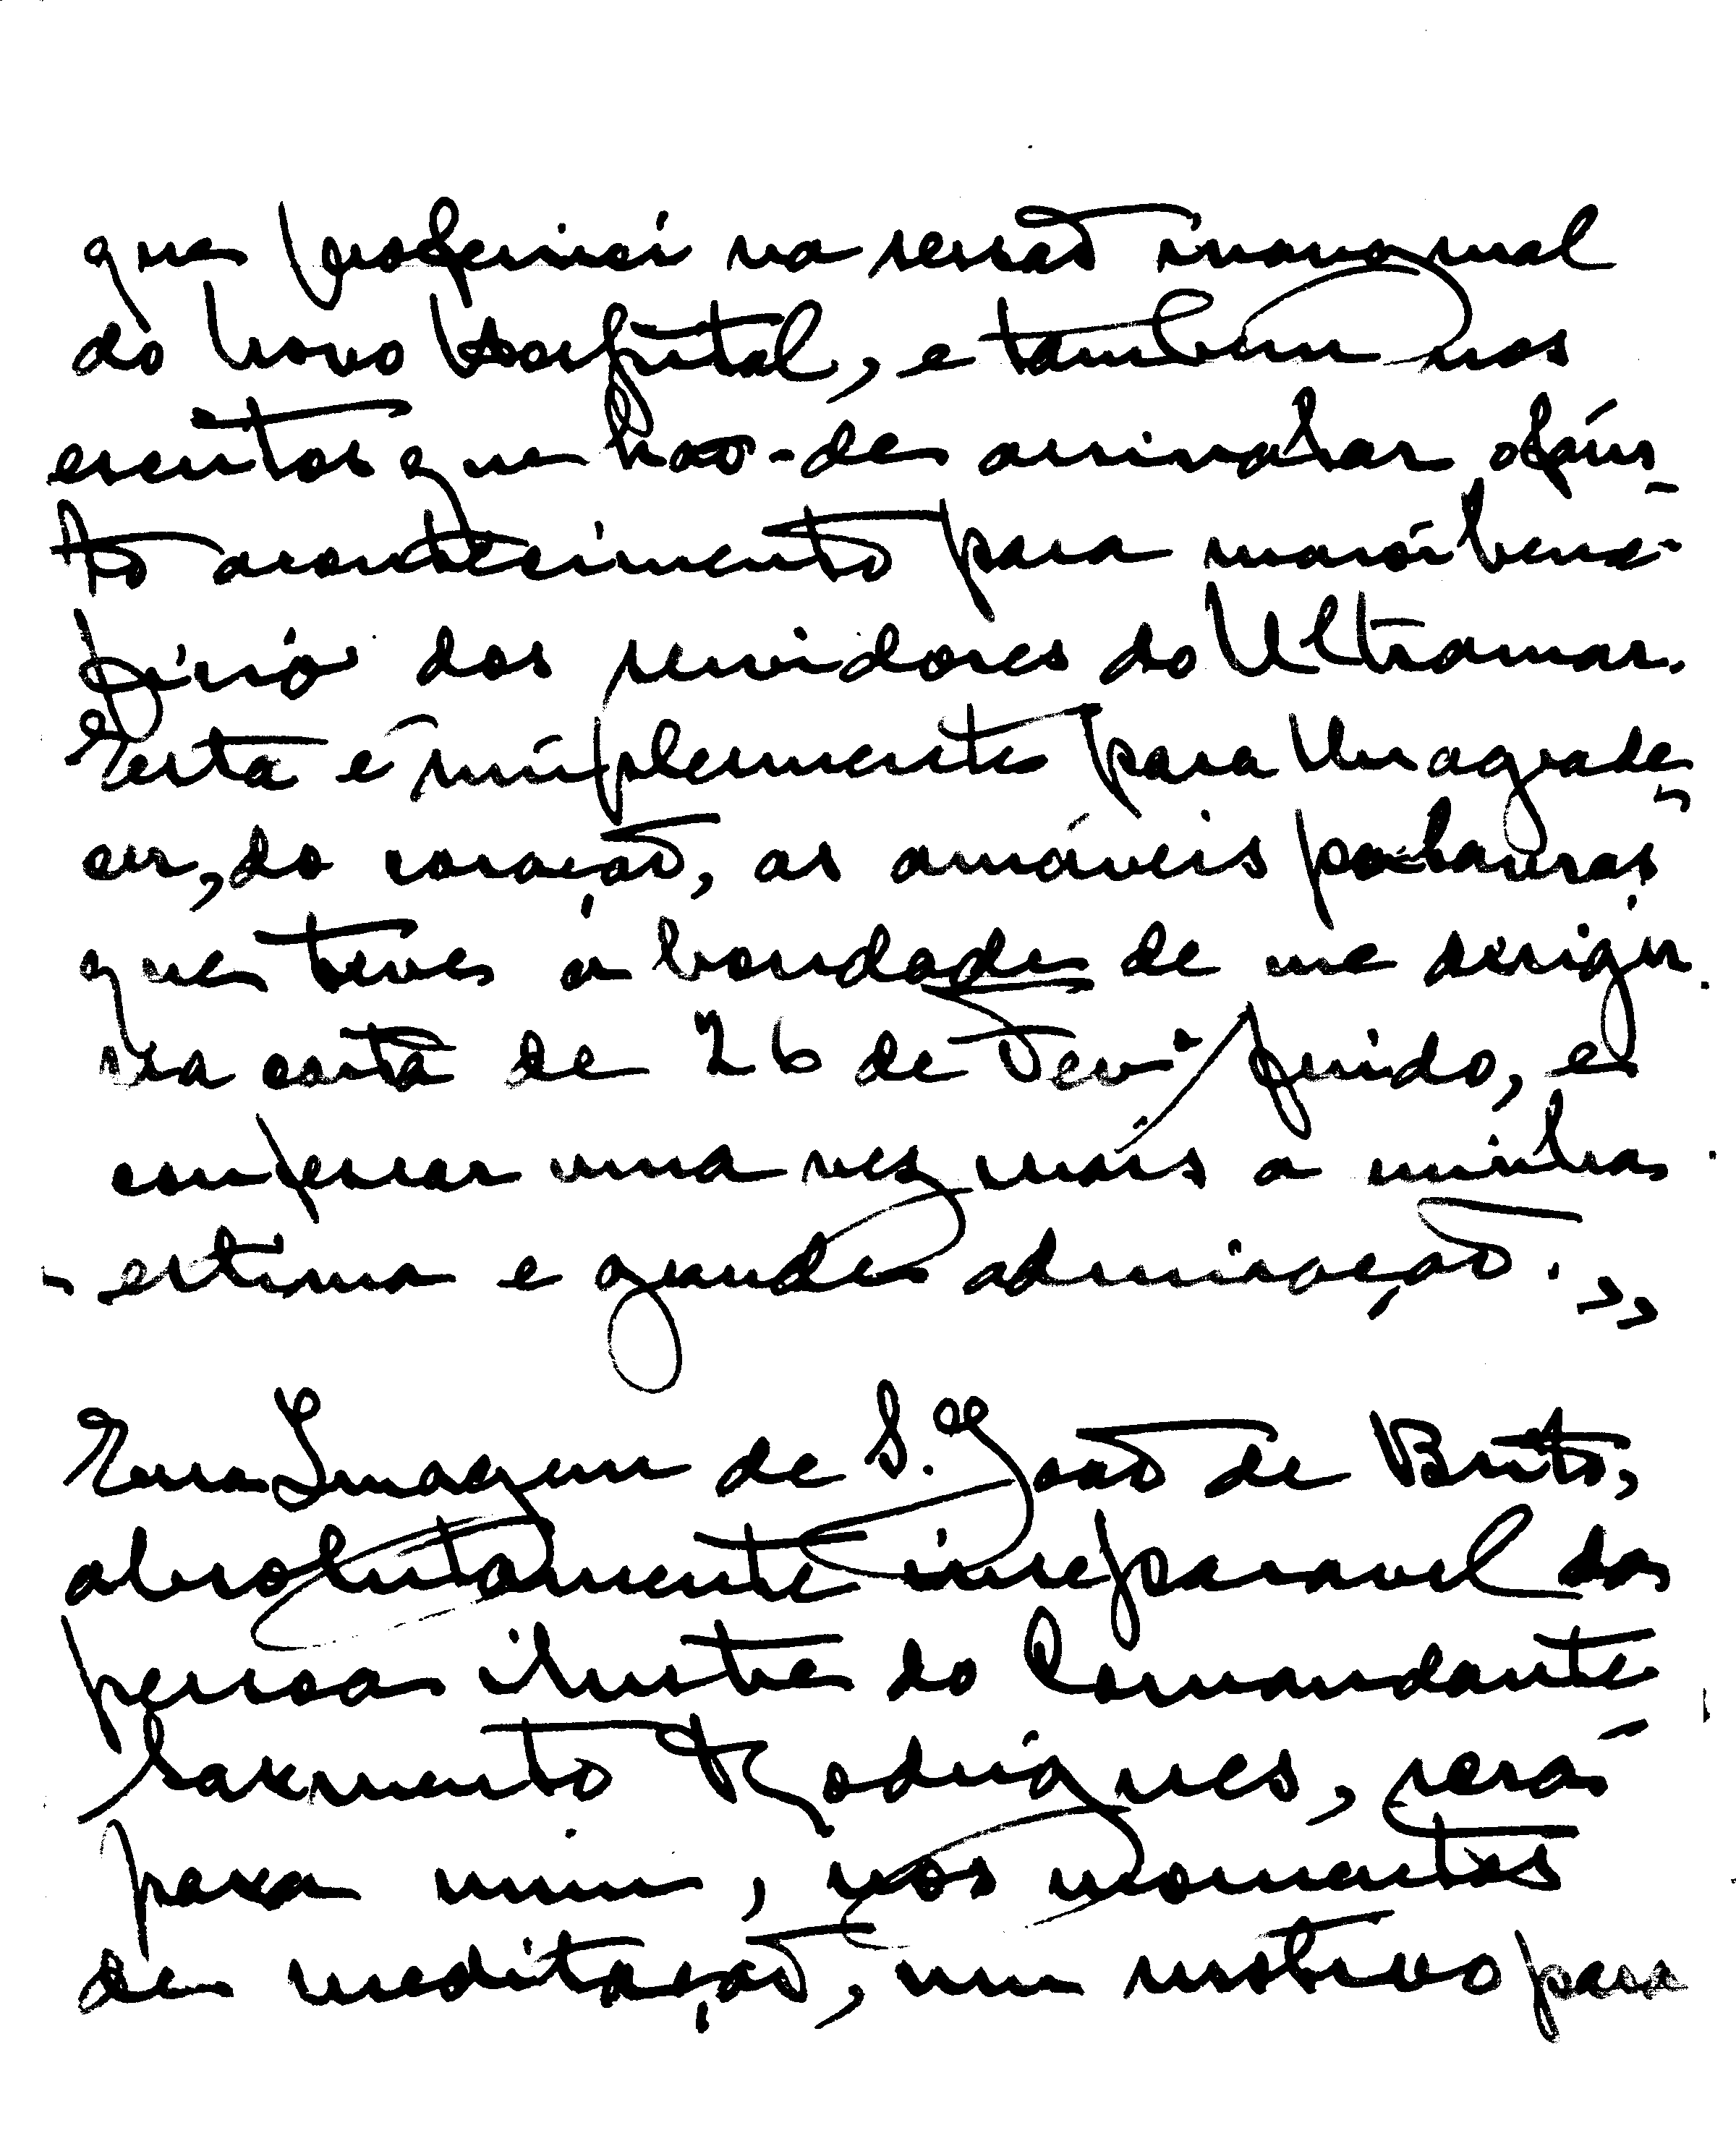 que proferirei na sessão inaugural
do novo Hospital, e tambem nos
escritos que hão-de assinalar o faus-
to acontecimento para maior bene-
ficio dos servidores do Ultramar.
Esta é simplesmente para lhe agrade-
cer, do coração, as amáveis palavras
que teve a bondade de me dirigir
na carta de 26 de Fev.º findo, e
confessar uma vez mais a minha
estima e grande admiração. "
Essa Imagem de S. João de Brito,
absolutamente inseparavel da
pessoa ilustre do Comandante
Sarmento Rodrigues, será
para mim, nos momentos
de meditação, um motivo para